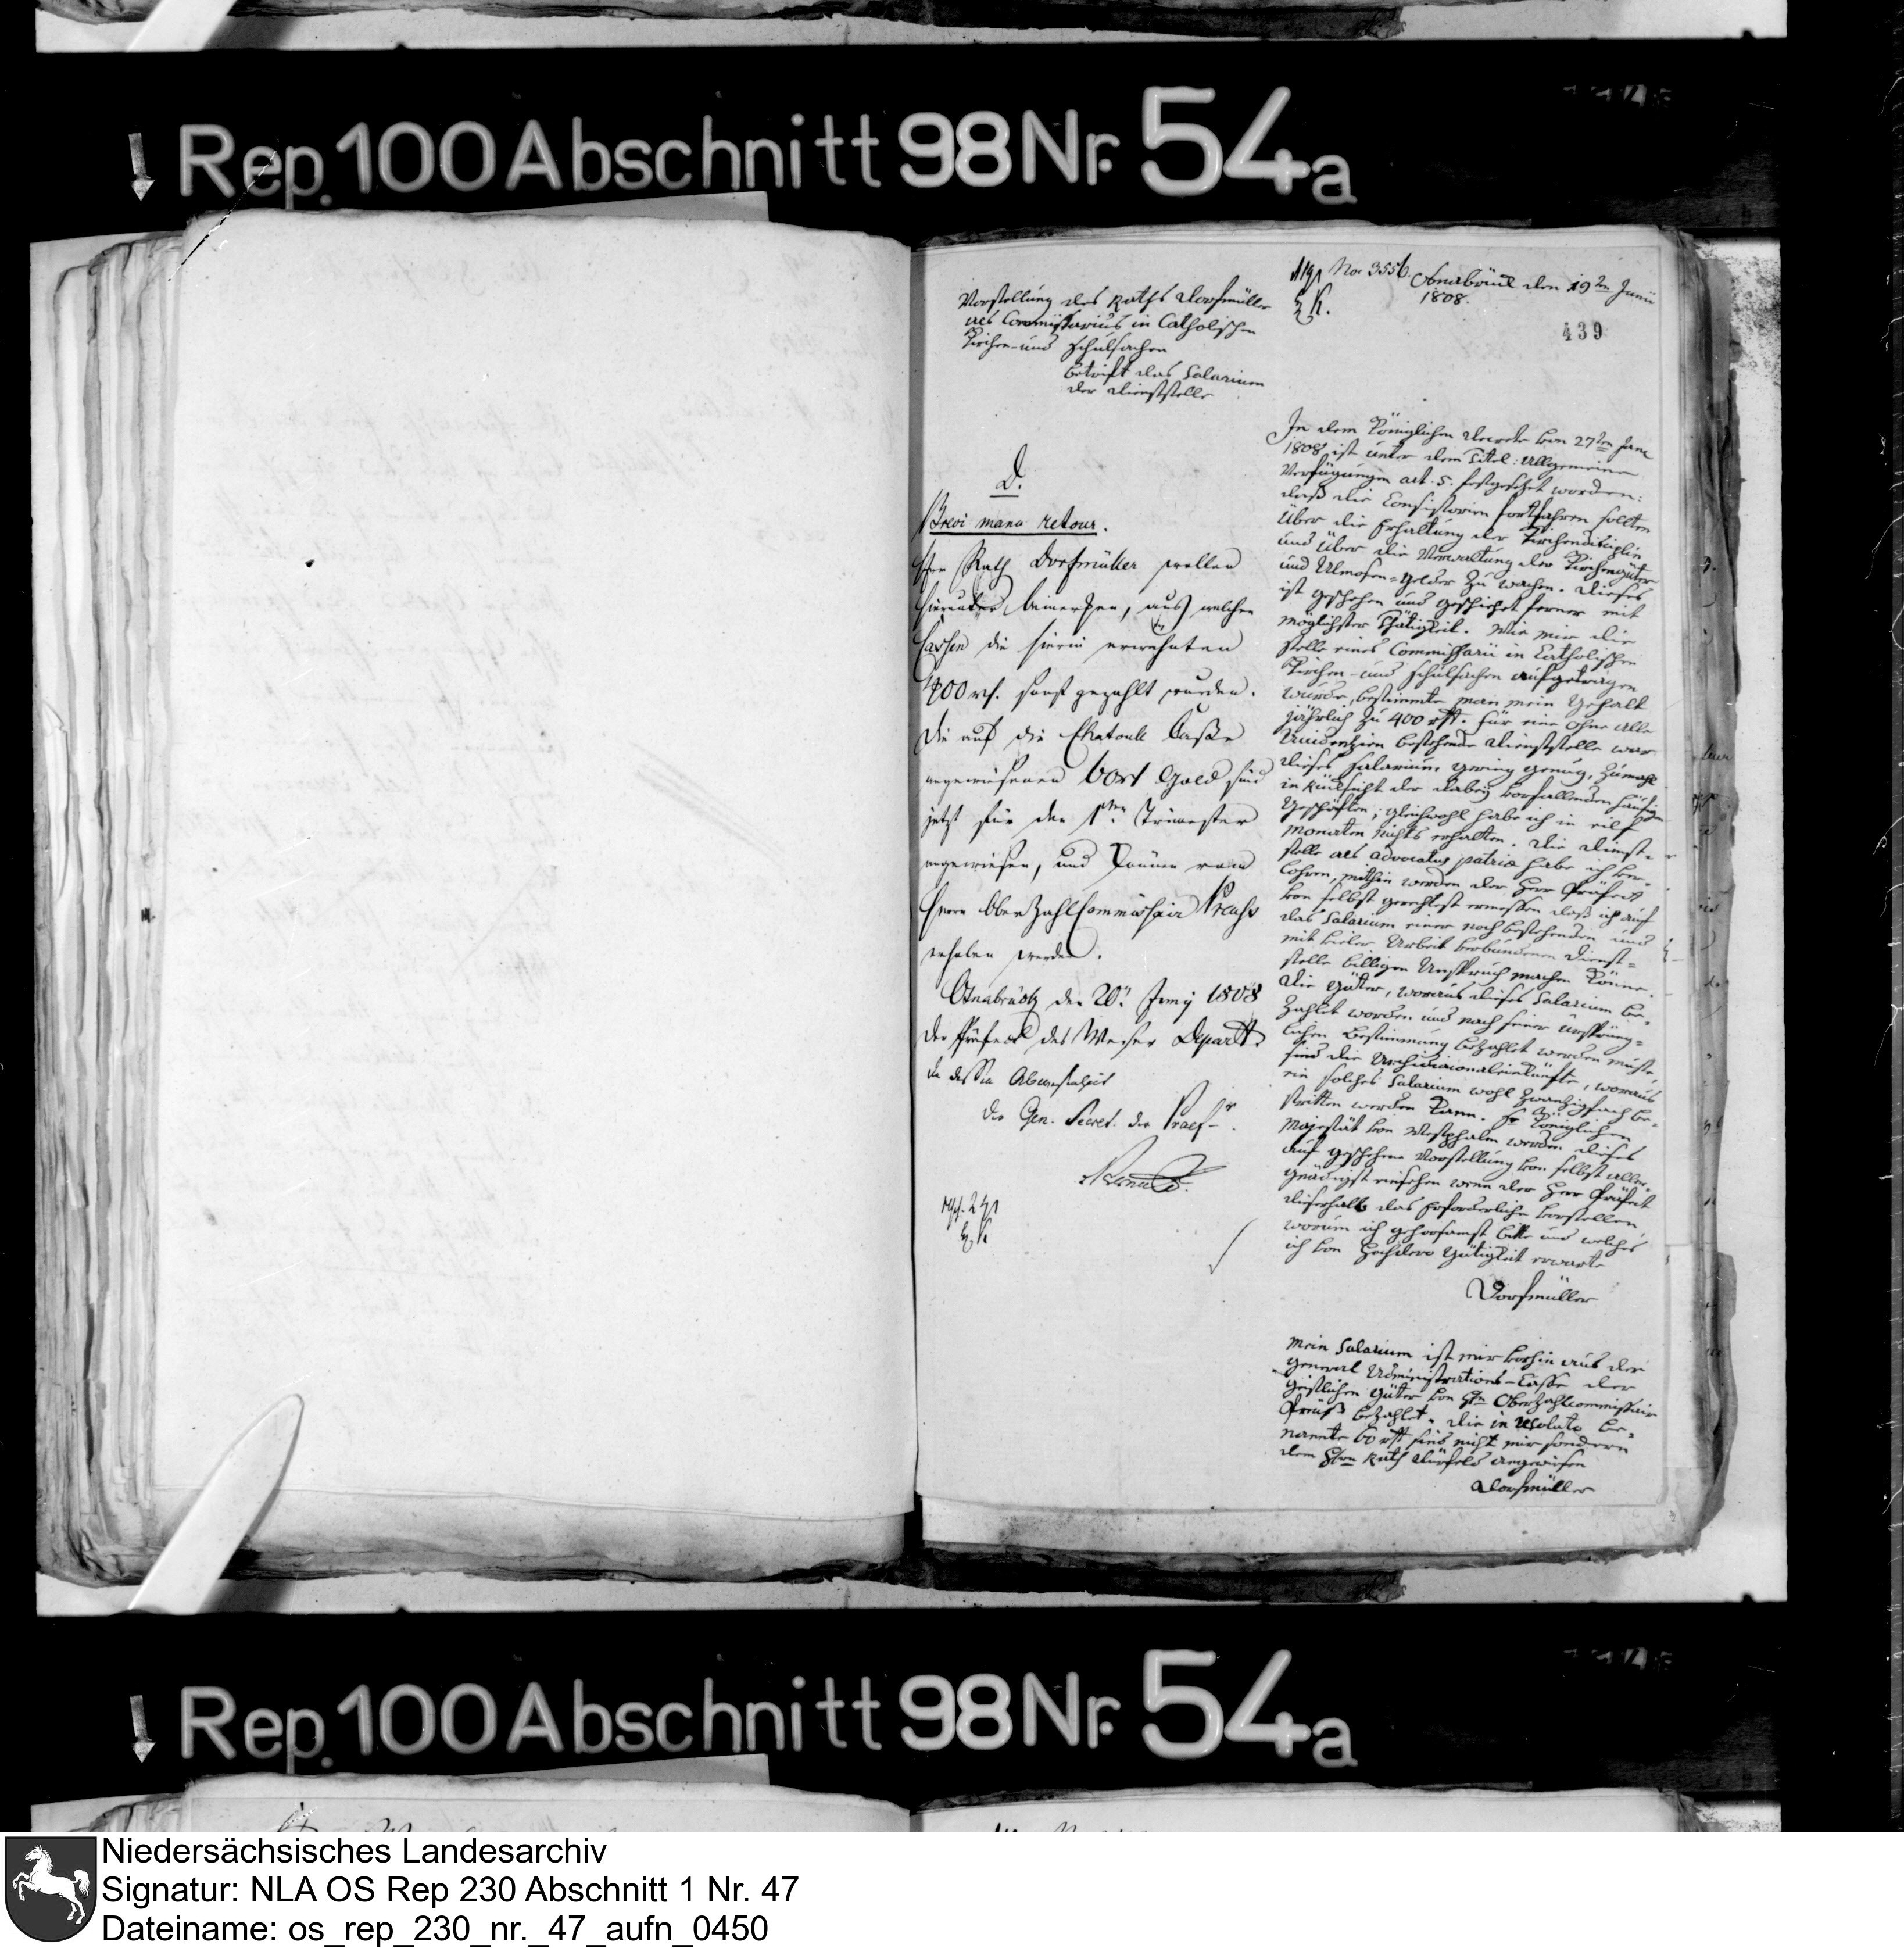 Rep. 100 Abschnitt 98 Nr. 54a
No 3556. Osnabrück den 19ten Junii
1808.
439
Vorstellung des Raths Dorfmüller
als Commissarius in Catholischen
Kirchen- und Schulsachen
betrift das Salarium
der Dienststelle
D.
Brevi manu retour.
Herr Rath Dorfmüller wollen
hierunter bemerken, aus welchen
Cassen die hierin erwehnten
400 rt. sonst gezahlt wurden.
Die auf die Chatoull Casse
angewiesenen 60 rt Gold sind
jetzt für den 1ten Trimester
angewiesen, und können vom
Herrn OberZahlCommissair Preuss
erhoben werden.
Osnabrück den 20n Juny 1808
Der Präfect des Weser Departts
In dessen Abwesenheit
der Gen. Secret. der Praefr.
In dem Königlichen Decrete von 27ten Jan.
1808 ist unter dem Titel: Allgemeine
Verfügungen art. 5. festgesetzt worden:
daß die Consistorien fortfahren sollten
über die Erhaltung der Kirchendisciplin
und über die Verwaltung der Kirchengüter
und Almosen-Gelder zu wachen. Dieses
ist geschehen und geschiehet ferner mit
möglichster Thätigkeit. Wie mir die
Stelle eines Commissarii in Catholischen
Kirchen- und Schulsachen aufgetragen
wurde, bestimmte man mein Gehalt
jährlich zu 400 rtt. Für eine ohne alle
Accidenzien bestehende Dienststelle war
dieses Salarium gering genug, zumahl
in Rücksicht der dabey vorfallenden häufigen
Geschäften; gleichwohl habe ich in eilf
Monaten nichts erhalten. Die Dienst-
stelle als advocatus patriae habe ich ver-
lohren, mithin werden der Herr Präfect
von selbst gerechtest ermessen daß ich auf
das Salarium einer noch bestehenden und
mit vieler Arbeit verbundenen Dienst-
stelle billigen Anspruch machen könne.
Die Güter, woraus dieses Salarium be-
zahlet worden und nach seiner ursprüng-
lichen Bestimmung bezahlet werden müste,
sind die Archidiaconaleinkünfte, woraus
ein solches Salarium wohl zwanzigfach be-
stritten werden kann. Sr Königlichen
Majestät von Westphalen werden dieses
auf geschehene Vorstellung von selbst aller-
gnädigst einsehen wenn der Herr Präfect
dieserhalb das Erforderliche vorstellen,
worum ich gehorsamst bitte und welches
ich von Hochdero Gütigkeit erwarte
Dorfmüller
Mein Salarium ist mir vorhin aus der
General Administrations-Casse der
geistlichen Güter von Hrn Oberzahlcommissair
Preuß bezahlet. Die in resoluto be-
nannte 60 rtt sind nicht mir sondern
dem Hrn Rath angewiesen
Dorfmüller
Rep. 100 Abschnitt 98 Nr. 54a
Niedersächsisches Landesarchiv
Signatur: NLA OS Rep 230 Abschnitt 1 Nr. 47
Dateiname: os_rep_230_nr._47_aufn_0450